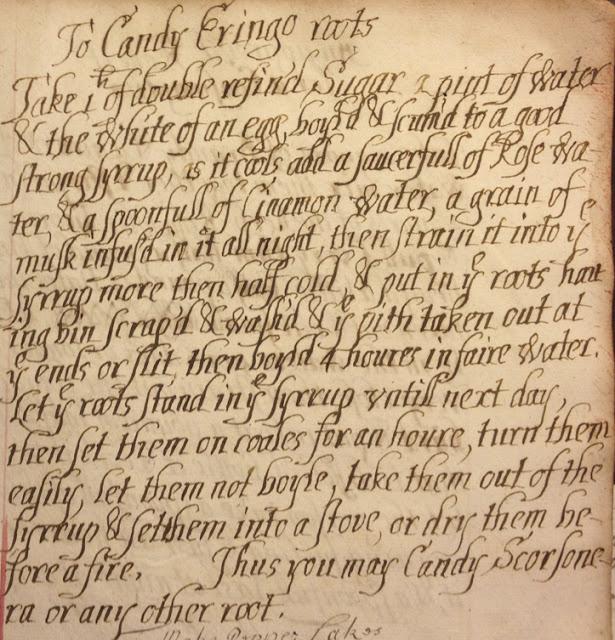 To Candy Eringo roots
Take 1ˡʰ of double refind Sugar a pint of water
& the white of an egg, boyl'd & scum'd to a good
strong syrrup, as it cools add a saucerfull of Rose wa-
ter, & a spoonfull of Cinamon water, a grain of
musk infus'd in it all night, then strain it into yᵉ
syrrup more then half cold, & put in yᵉ roots hau
ing bin scrap'd & wash'd & yᵉ pith taken out at
yᵉ ends or slit, then boyld 4 houres in faire water.
Let yᵉ roots stand in yᵉ syrrup untill next day,
then set them on coales for an houre, turn them
easily, let them not boyle, take them out of the
syrrup & set them into a stove, or dry them be-
fore a fire. Thus you may Candy Scorsone-
ra or any other root.
Make Cakes